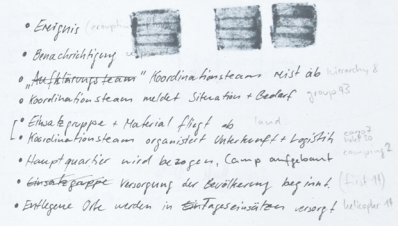 • Ereignis
• Benachrichtigung
• „Aufklärungsteam" Koordinationsteam reist ab hierarchy 8
• Koordinationsteam meldet Situation + Bedarf group 93
• Einsatzgruppe + Material fliegt ab land
• Koordinationsteam organisiert Unterkunft + Logistik
• Hauptquartier wird bezogen, Camp aufgebaut camping 2
• Einsatzgruppe Versorgung der Bevölkerung beginnt. (first 11)
• Entlegene Orte werden in Tageseinsätzen versorgt helicopter 11